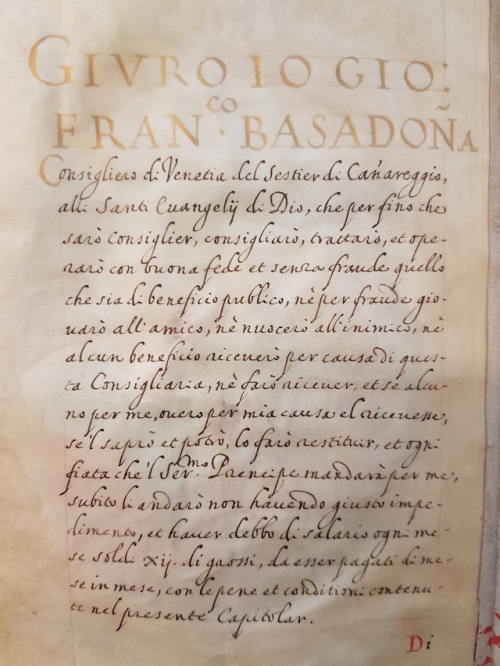 GIVRO IO GIO:
FRAN.co BASADOÑA
Consigliero di Venetia del Sestier di Cañareggio,
alli Santi Euangelij di Dio, che per fino che
sarò Consiglier, consigliarò, trattarò, et ope-
rarò con buona fede et senza fraude quello
che sia di beneficio publico, nè per fraude gio-
uarò all'amico, nè nuocerò all'inimico, nè
alcun beneficio riceuerò per causa di ques-
ta Consigliaria, nè farò riceuer, et se alcu-
no per me, ouero per mia causa el riceuesse,
se'l saprò et potrò, lo farò restituir, et ogni
fiata che'l Ser.mo Prencipe mandarà per me,
subito li andarò non hauendo giusto impe-
dimento, et hauer debbo di salario ogni me-
se soldi xij. di grossi, da esser pagati di me-
se in mese, con le pene et conditioni contenu-
te nel presente Capitolar.
Di